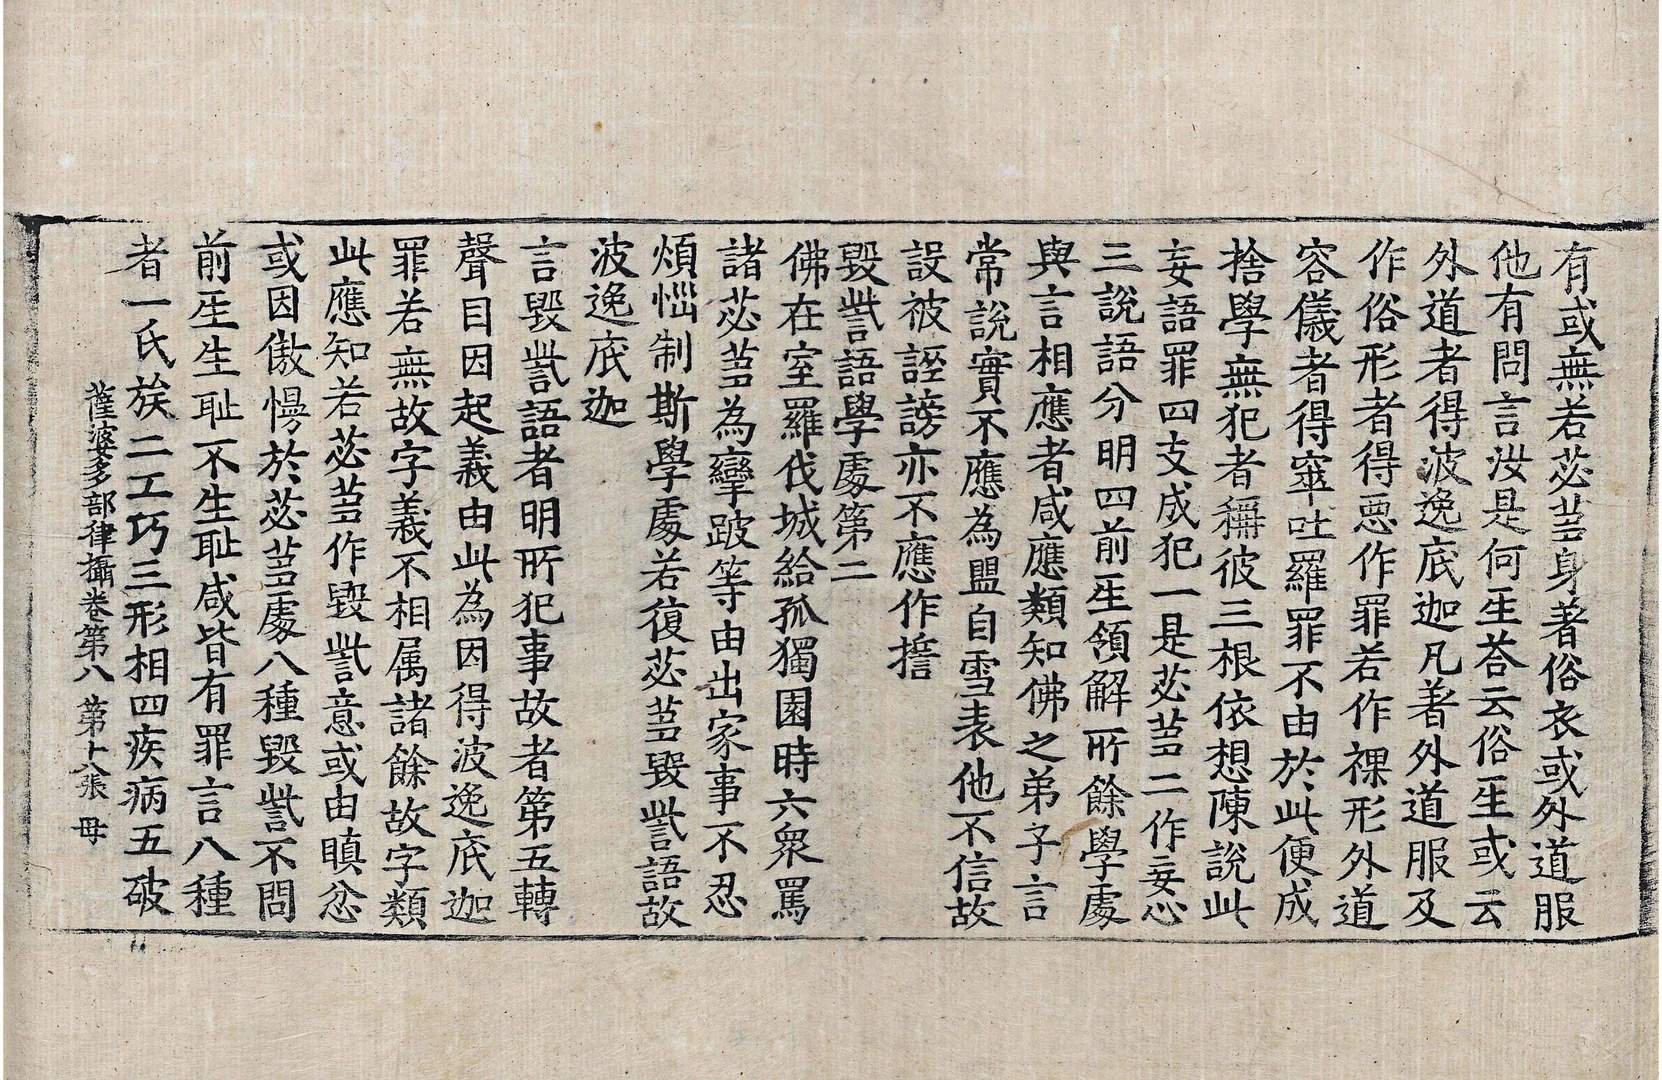 有或無若苾芻身著俗衣或外道服
他有問言汝是何生荅云俗生或云
外道者得波逸底迦凡著外道服及
作俗形者得惡作罪若作裸形外道
容儀者得窣吐羅罪不由於此便成
捨學無犯者稱彼三根依想陳說此
妄語罪四支成犯一是苾芻二作妄心
三說語分明四前生領解所餘學處
與言相應者咸應類知佛之弟子言
常說實不應為盟自雪表他不信故
設被誣謗亦不應作擔
毀訾語學處第二
佛在室羅伐城給孤獨園時六眾罵
諸苾芻為攣跛等由出家事不忍
煩惱制斯學處若復苾芻毀訾語故
波逸底迦
言毀訾語者明所犯事故者第五轉
聲目因起義由此為因得波逸底迦
罪若無故字義不相属諸餘故字類
此應知若苾芻作毀訾意或由瞋忿
或因傲慢於苾芻處八種毀訾不問
前生生恥不生恥咸皆有罪言八種
者一氏族二工巧三形相四疾病五破
薩婆多部律攝卷第八 第十八張 母